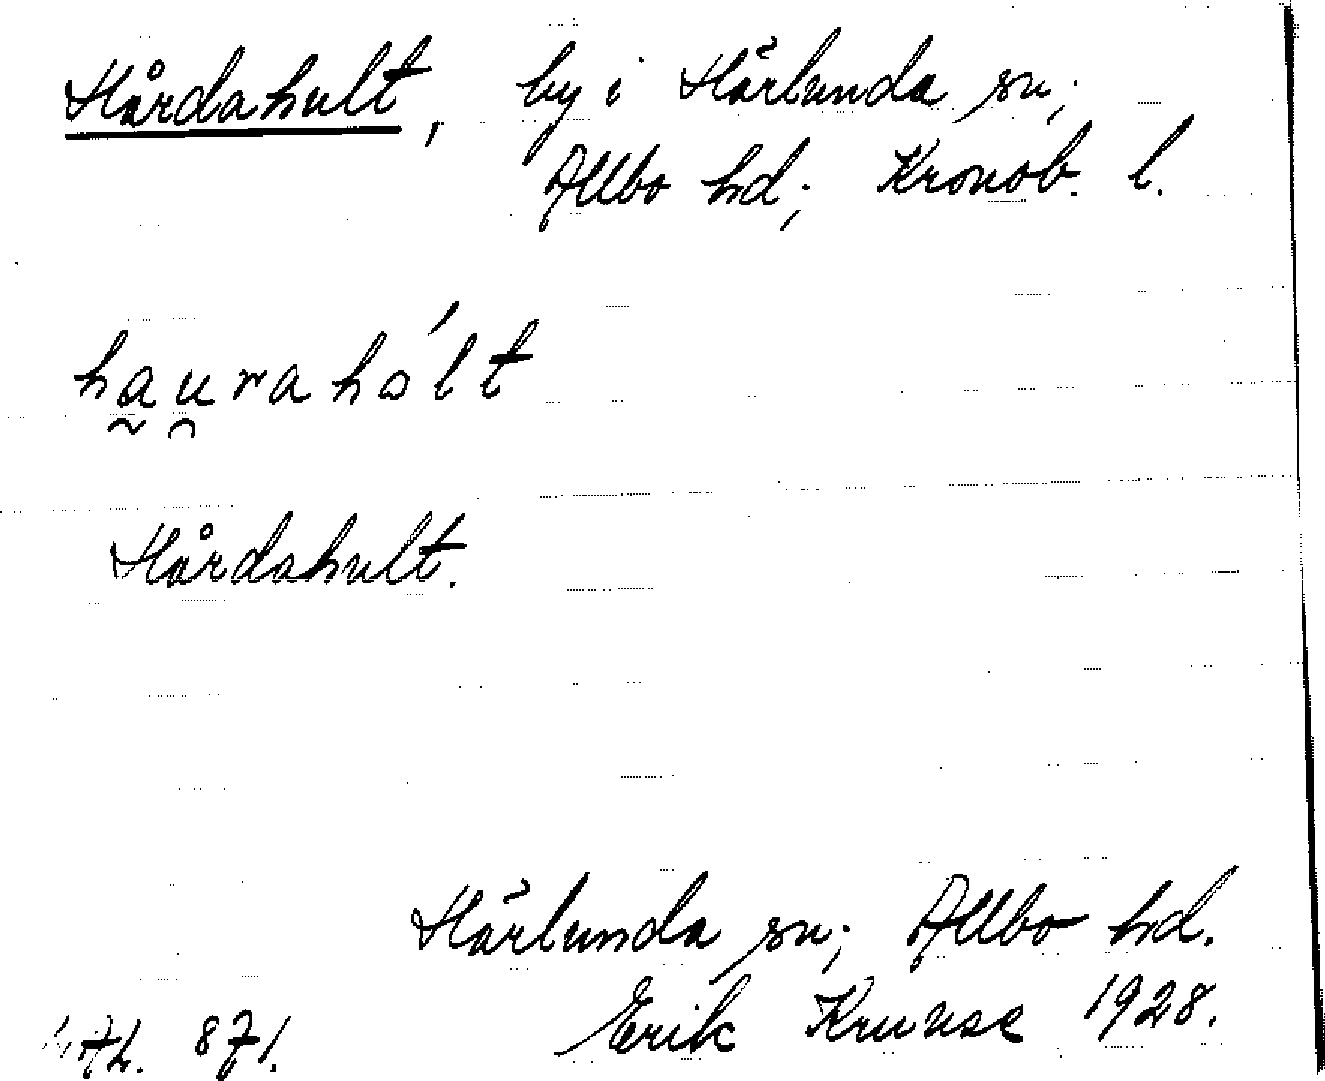 Hårdahult, by i Härlunda sn;
Allbo hd; Kronob. l.
ha̰u̯rahólt
Hårdahult.
Härlunda sn; Allbo hd.
871. Erik Kruuse 1928.